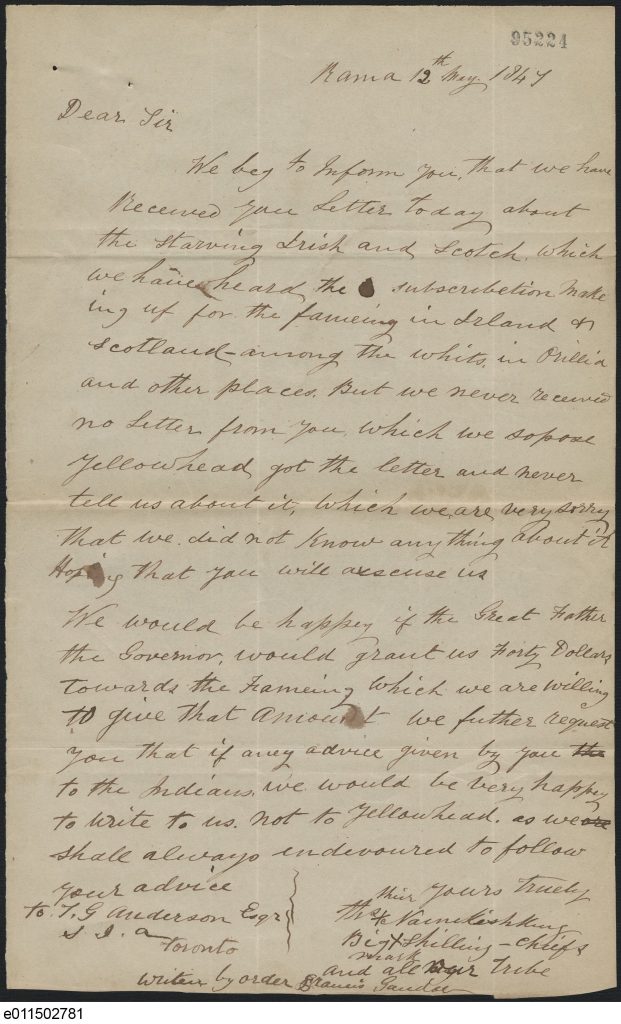 95224
Rama 12th May. 1847
Dear Sir
We beg to Inform you, that we have
Received you Letter today about
the starving Irish and Scotch, which
we have heard the subscribetion make
ing up for the fameing in Irland &
Scotland among the whits, in Orillia
and other places. But we never received
no Letter from you, which we sopose
Yellowhead, got the letter and never
tell us about it, which we are very sorry
that we did not know anything about it
Hoping that you will axscuse us
We would be happey if the Great Father
the Governor, would grant us Forty Dollars
towards the Fameing which we are willing
to give that Amount we futher request
you that if aney advice given by you the
to the Indians, we would be very happey
to write to us. not to Yellowhead. as we are
shall always indevoured to follow
your advice
to T. G Anderson Esqr
S. I. a
Toronto
thier yours truely
Thos X Naingishkung
Big X Shilling - chiefs
mark
and all our tribe
Writen by order Francis
e011502781